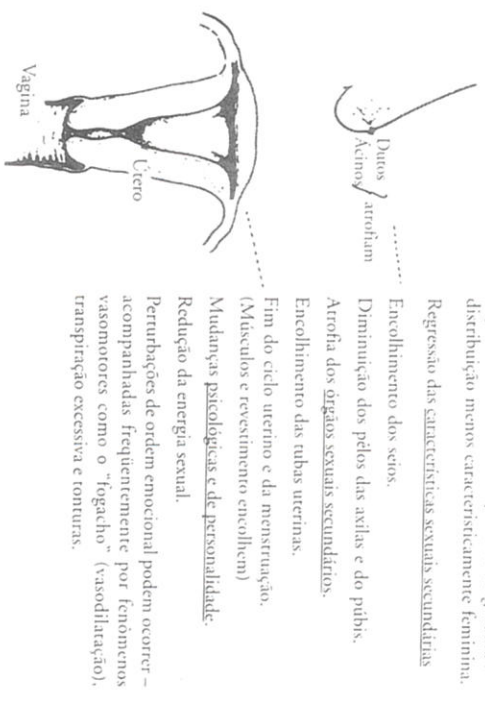 distribuição menos caracteristicamente feminina.
Regressão das características sexuais secundárias
Encolhimento dos seios.
Diminuição dos pêlos das axilas e do púbis.
Atrofia dos órgãos sexuais secundários.
Encolhimento das tubas uterinas.
Fim do ciclo uterino e da menstruação.
(Músculos e revestimento encolhem)
Mudanças psicológicas e de personalidade.
Redução da energia sexual.
Perturbações de ordem emocional podem ocorrer –
acompanhadas freqüentemente por fenômenos
vasomotores como o "fogacho" (vasodilatação),
transpiração excessiva e tonturas.
Dutos
Ácinos
atrofiam
Útero
Vagina